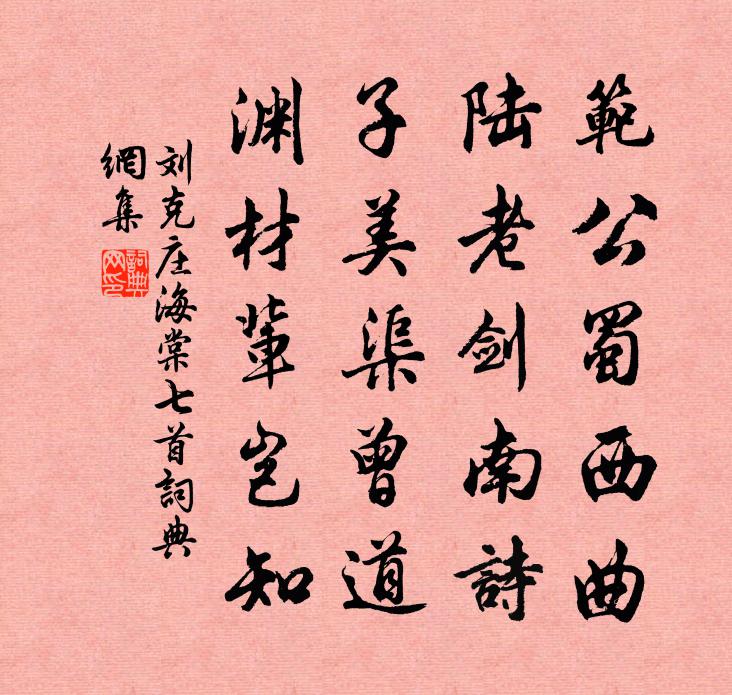 範公蜀西曲
陆老剑南詩
子美渠曾道
渊材輩岂知
刘克庄海棠七首詞典
網集
詞典
网印